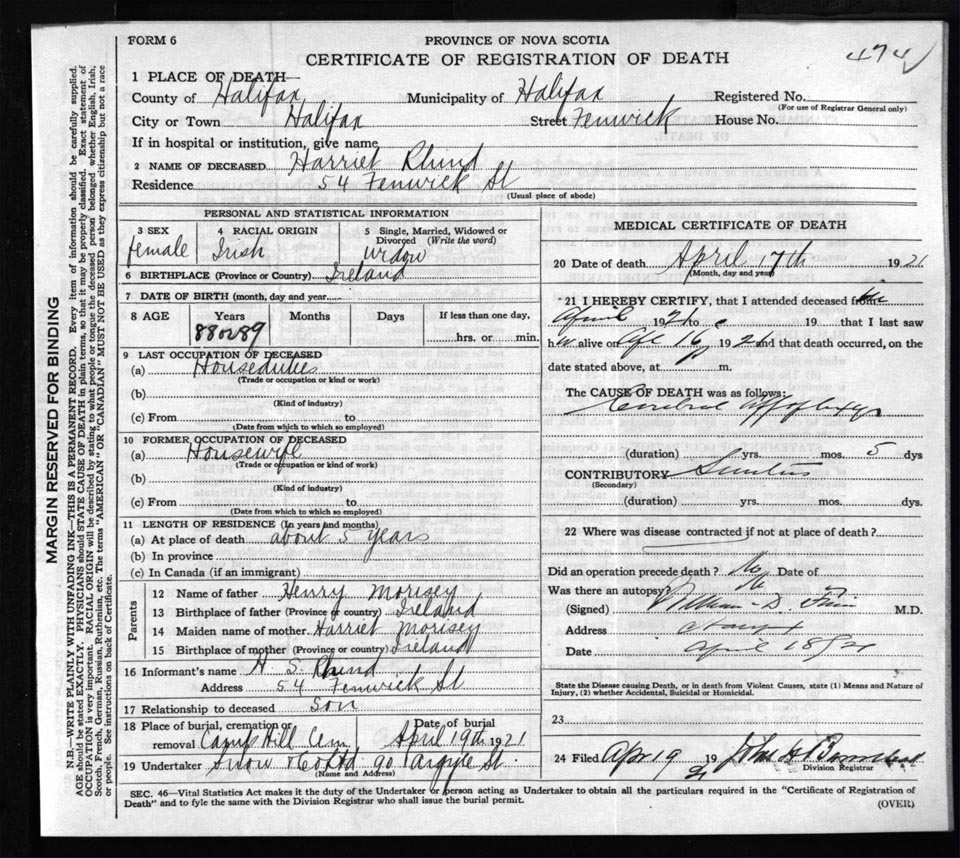 FORM 6
PROVINCE OF NOVA SCOTIA
CERTIFICATE OF REGISTRATION OF DEATH
474
1 PLACE OF DEATH—
County of Halifax Municipality of Halifax Registered No.
(For use of Registrar General only)
City or Town Halifax Street Fenwick House No.
If in hospital or institution, give name
2 NAME OF DECEASED Harriet Rhind
Residence 54 Fenwick St
(Usual place of abode)
PERSONAL AND STATISTICAL INFORMATION
3 SEX 4 RACIAL ORIGIN 5 Single, Married, Widowed or
Divorced (Write the word)
female Irish Widow
6 BIRTHPLACE (Province or Country) Ireland
7 DATE OF BIRTH (month, day and year
8 AGE Years Months Days If less than one day,
88 or 89
hrs. or min.
9 LAST OCCUPATION OF DECEASED
(a) Houseduties
(Trade or occupation or kind or work)
(b)
(Kind of industry)
(c) From to
(Date from which to which so employed)
10 FORMER OCCUPATION OF DECEASED
(a) Housewife
(Trade or occupation or kind of work)
(b)
(Kind of industry)
(c) From to
(Date from which to which so employed)
11 LENGTH OF RESIDENCE (In years and months)
(a) At place of death about 5 years
(b) In province
(c) In Canada (if an immigrant)
Parents
12 Name of father Henry Morisey
13 Birthplace of father (Province or country) Ireland
14 Maiden name of mother Harriet Morisey
15 Birthplace of mother (Province or country) Ireland
16 Informant's name H S. Rhind
Address 54 Fenwick St
17 Relationship to deceased Son
18 Place of burial, cremation or Date of burial
removal Camp Hill Cem April 19th 1921
19 Undertaker Snow & Co Ltd 90 Argyle St.
(Name and Address)
MEDICAL CERTIFICATE OF DEATH
20 Date of death April 17th 1921
(Month, day and year)
21 I HEREBY CERTIFY, that I attended deceased from
April 1921 to 19 that I last saw
h alive on Apl 16 1921 and that death occurred, on the
date stated above, at m.
The CAUSE OF DEATH was as follows:
Cerebral Apoplexy
(duration) yrs. mos. 5 dys
CONTRIBUTORY
(Secondary)
(duration) yrs. mos. dys.
22 Where was disease contracted if not at place of death?
Did an operation precede death? No Date of
Was there an autopsy? No
(Signed) William D. M.D.
Address
Date April 18/21
State the Disease causing Death, or in death from Violent Causes, state (1) Means and Nature of
Injury, (2) whether Accidental, Suicidal or Homicidal.
23
24 Filed Apr 19 1921 John
Division Registrar
SEC. 46—Vital Statistics Act makes it the duty of the Undertaker or person acting as Undertaker to obtain all the particulars required in the "Certificate of Registration of
Death" and to fyle the same with the Division Registrar who shall issue the burial permit.
(OVER)
MARGIN RESERVED FOR BINDING
N.B.—WRITE PLAINLY WITH UNFADING INK—THIS IS A PERMANENT RECORD. Every item of information should be carefully supplied.
AGE should be stated EXACTLY. PHYSICIANS should STATE CAUSE OF DEATH in plain terms, so that it may be properly classified. Exact statement of
OCCUPATION is very important. RACIAL ORIGIN will be described by stating to what people or tongue the deceased person belonged whether English, Irish,
Scotch, French, German, Russian, Ruthenian, etc. The terms "AMERICAN" or "CANADIAN" MUST NOT BE USED as they express citizenship but not a race
or people. See instructions on back of Certificate.